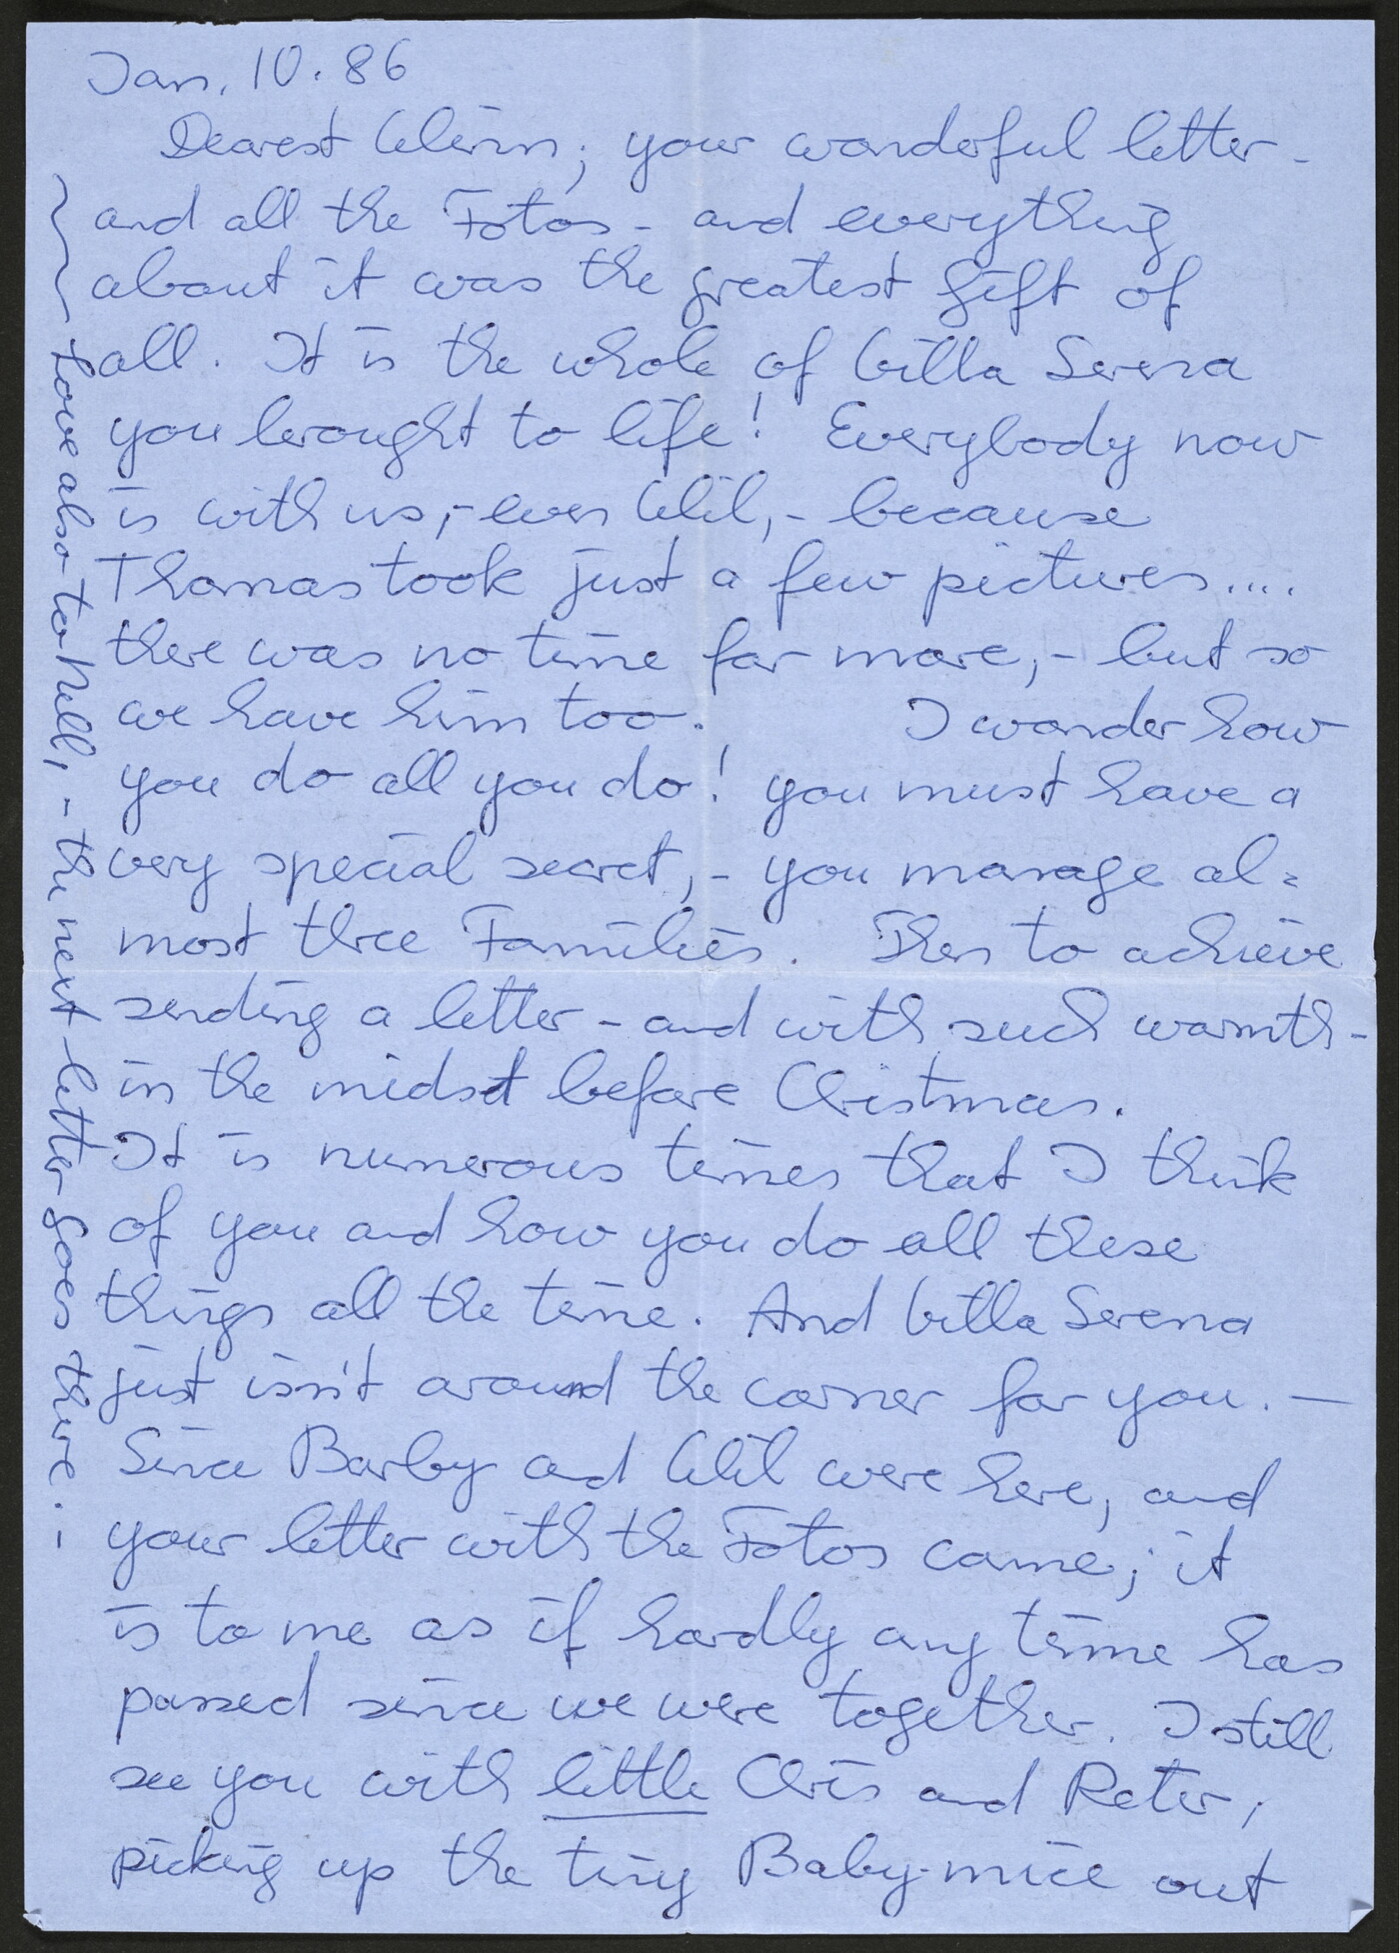 Jan. 10. 86
Dearest Winn; your wonderful letter -
and all the Fotos - and everything
about it was the greatest gift of
all. It is the whole of Villa Serena
you brought to life! Everybody now
is with us, - even Wil, - because
Thomas took just a few pictures....
there was no time for more, - but so
we have him too. I wonder how
you do all you do! you must have a
very special secret, - you manage al=
most three Families. Then to achieve
sending a letter - and with such warmth -
in the midst before Christmas.
It is numerous times that I think
of you and how you do all these
things all the time. And Villa Serena
just isn't around the corner for you. —
Since Barby and Wil were here, and
your letter with the Fotos came; it
is to me as if hardly any time has
passed since we were together. I still
see you with little Chris and Peter,
picking up the tiny Baby-mice out
Love also to Nell, - the next letter goes there. -